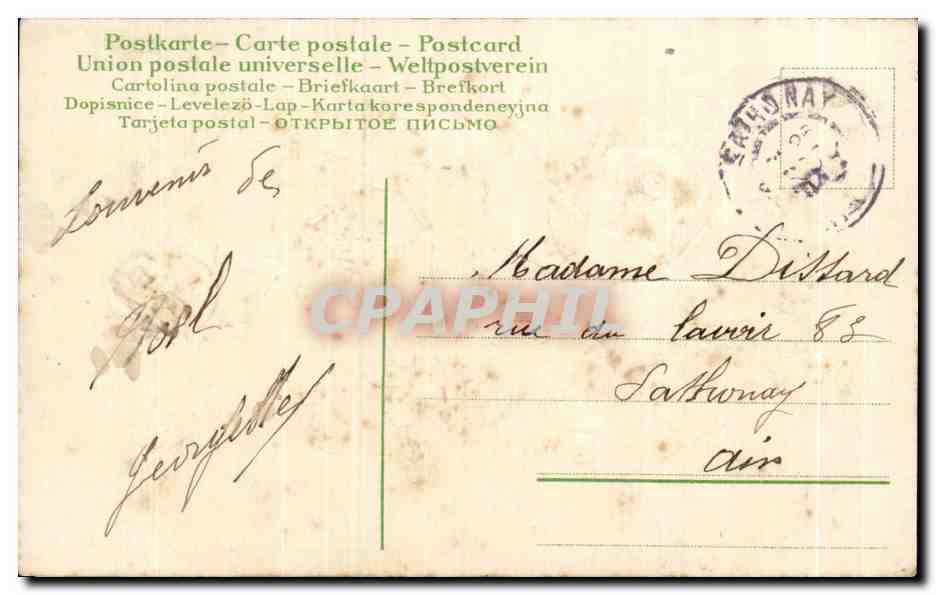 Postkarte – Carte postale – Postcard
Union postale universelle – Weltpostverein
Cartolina postale – Briefkaart – Brefkort
Dopisnice – Levelezö-Lap – Karta korespondeneyjna
Tarjeta postal – ОТКРЫТОЕ ПИСЬМО
SATHONAY
Souvenir de
Noël
Georgette
Madame Dissard
rue du lavoir 83
Sathonay
Ain
CPAPHIL